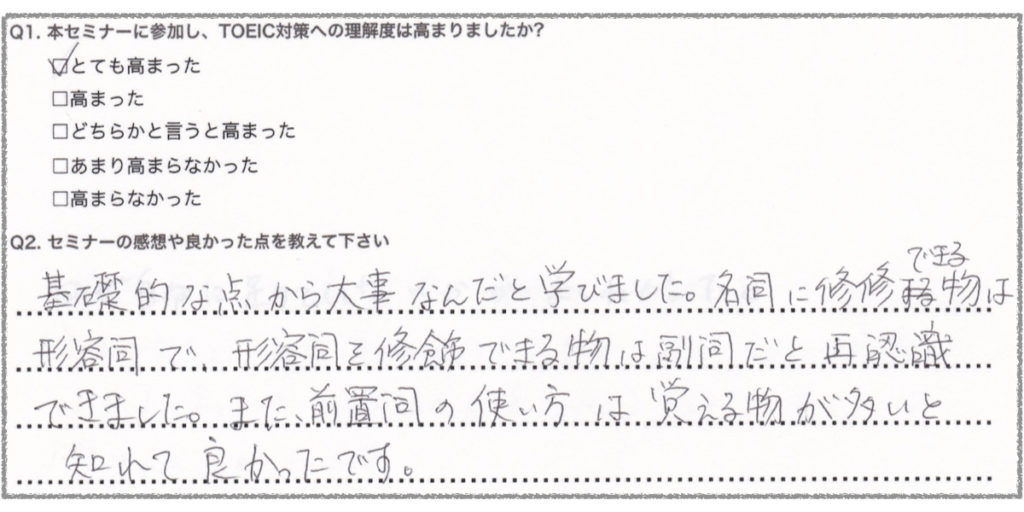 Q1. 本セミナーに参加し、TOEIC対策への理解度は高まりましたか?
☑とても高まった
□高まった
□どちらかと言うと高まった
□あまり高まらなかった
□高まらなかった
Q2. セミナーの感想や良かった点を教えて下さい
基礎的な点から大事なんだと学びました。名詞に修修できる物は
形容詞で、形容詞を修飾できる物は副詞だと再認識
できました。また、前置詞の使い方は覚える物が多いと
知れて良かったです。